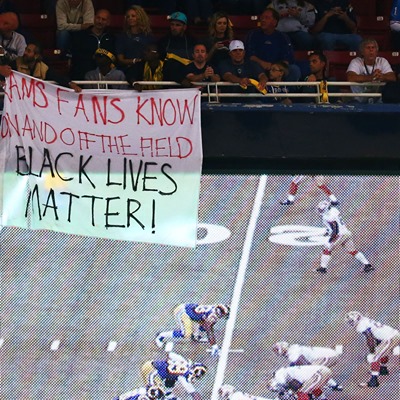 RAMS FANS KNOW
ON AND OFF THE FIELD
BLACK LIVES
MATTER!